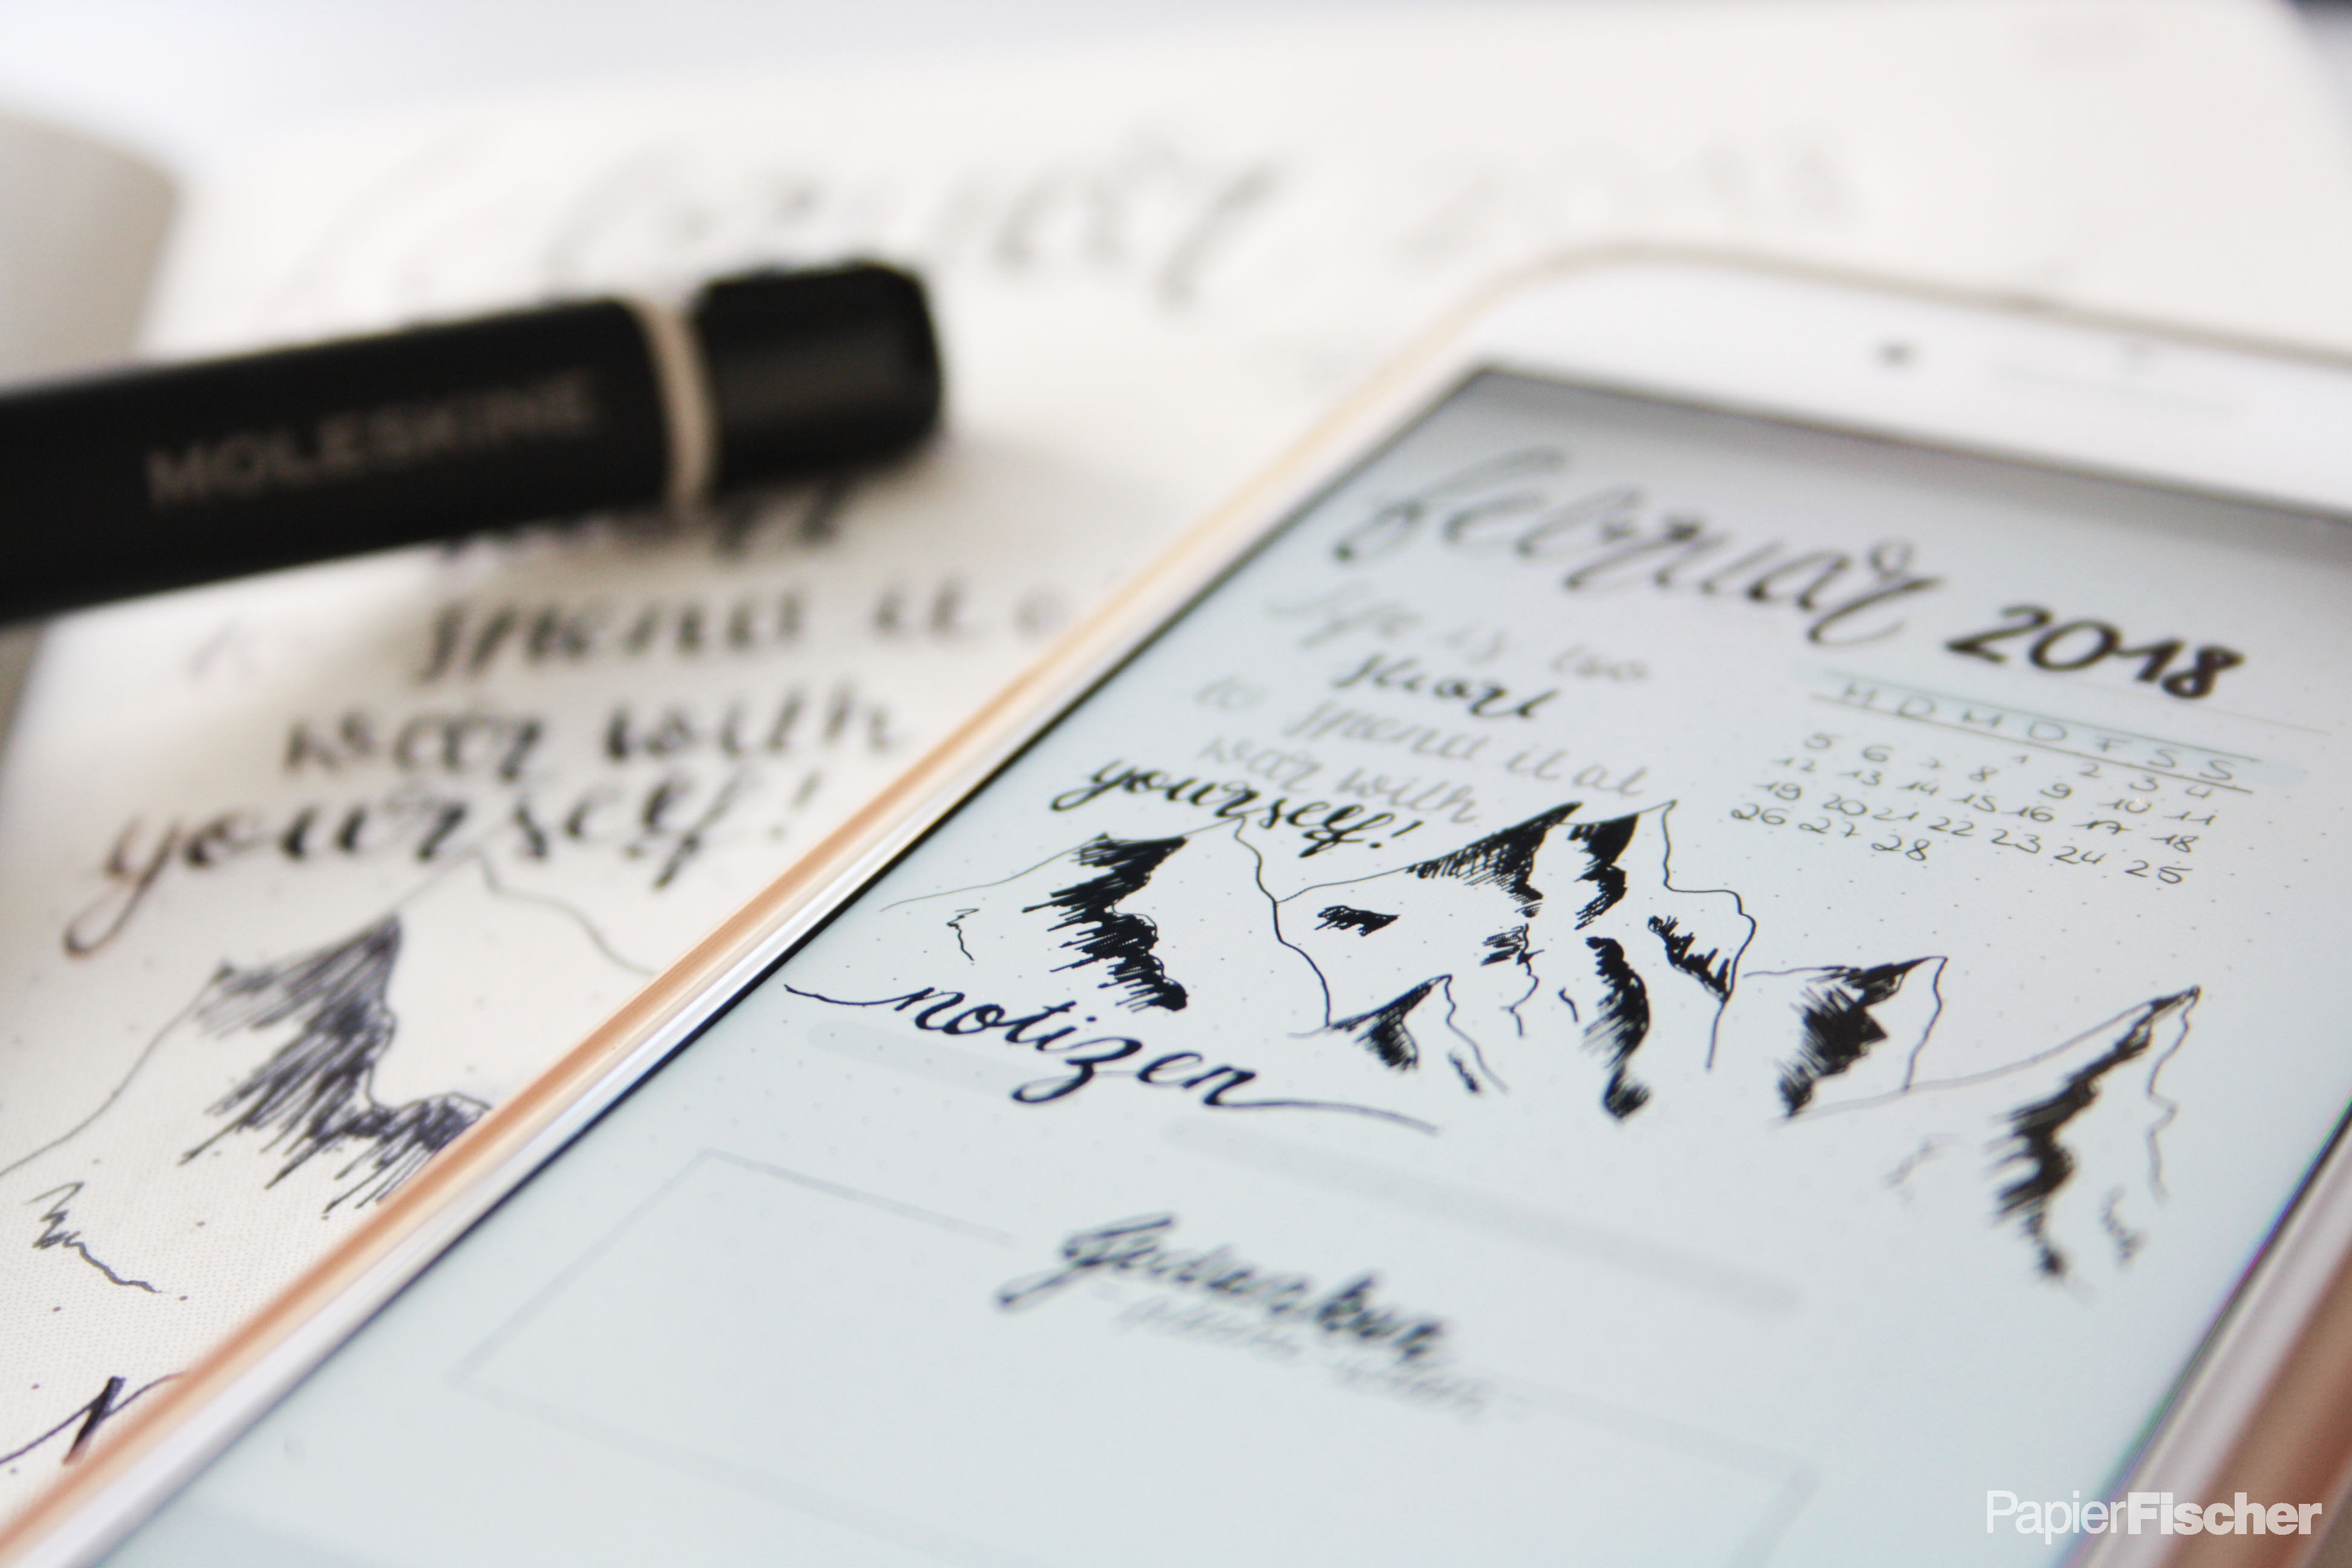 MOLESKINE
spend it a
war with
yourself!
N
februar 2018
life is too
short
to spend it at
war with
yourself!
M D M D F S S
1 2 3 4
5 6 7 8 9 10 11
12 13 14 15 16 17 18
19 20 21 22 23 24 25
26 27 28
notizen
Gedanken
PapierFischer